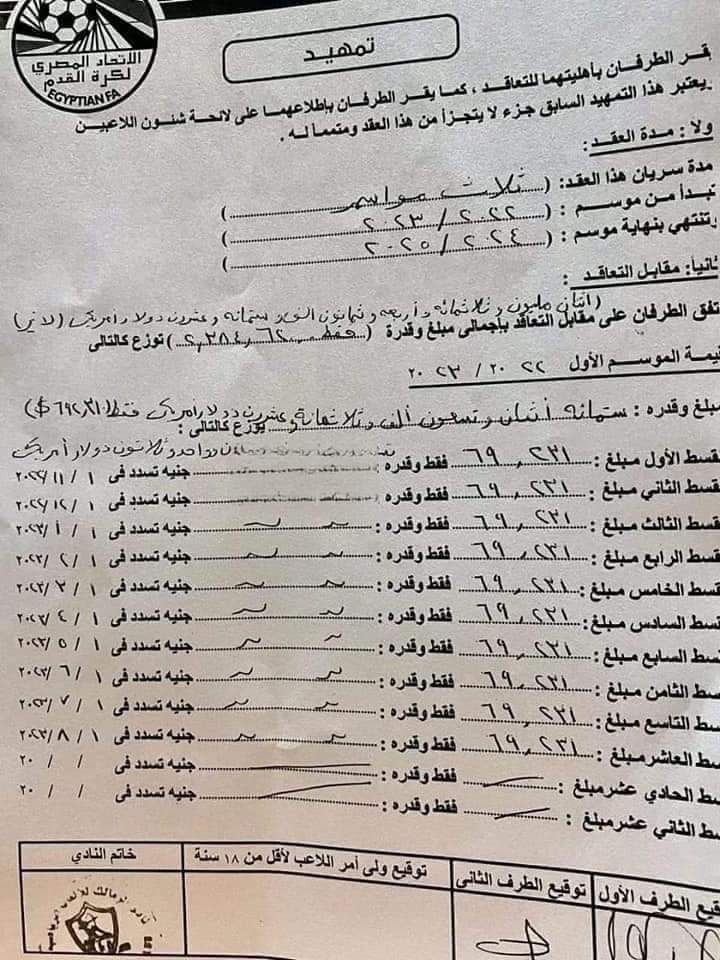 الاتحاد المصري
لكرة القدم
EGYPTIAN FA
تمهيد
يقر الطرفان بأهليتهما للتعاقد ، كما يقر الطرفان بإطلاعهما على لائحة شئون اللاعبين
يعتبر هذا التمهيد السابق جزء لا يتجزأ من هذا العقد ومتمما له .
ولا : مدة العقد :
مدة سريان هذا العقد : ( ثلاث مواسم )
تبدأ من موسم : ( ٢٠٢٢ / ٢٠٢٣ )
تنتهي بنهاية موسم : ( ٢٠٢٤ / ٢٠٢٥ )
ثانيا : مقابل التعاقد :
(اثنان مليون وثلاثمائه وأربعه وثمانون الف وستمائه وعشرون دولار أمريكي (لا غير)
تفق الطرفان على مقابل التعاقد بإجمالي مبلغ وقدرة ( فقط ٢,٣٨٤,٦٢٠ ) توزع كالتالى
قيمة الموسم الأول ٢٠٢٢ / ٢٠٢٣
مبلغ وقدره : ستمائه أثنان وتسعون ألف وثلاثمائة وعشرون دولار أمريكي فقط (٦٩٢,٣١٠ $)
يوزع كالتالى :
وواحد وثلاثون دولار أمريكي
قسط الأول مبلغ : ٦٩,٢٣١ فقط وقدره : جنيه تسدد فى ١ / ١١ / ٢٠٢٢
قسط الثاني مبلغ : ٦٩,٢٣١ فقط وقدره : جنيه تسدد فى ١ / ١٢ / ٢٠٢٢
قسط الثالث مبلغ : ٦٩,٢٣١ فقط وقدره : جنيه تسدد فى ١ / ١ / ٢٠٢٣
قسط الرابع مبلغ : ٦٩,٢٣١ فقط وقدره : جنيه تسدد فى ١ / ٢ / ٢٠٢٣
قسط الخامس مبلغ : ٦٩,٢٣١ فقط وقدره : جنيه تسدد فى ١ / ٣ / ٢٠٢٣
قسط السادس مبلغ : ٦٩,٢٣١ فقط وقدره : جنيه تسدد فى ١ / ٤ / ٢٠٢٣
قسط السابع مبلغ : ٦٩,٢٣١ فقط وقدره : جنيه تسدد فى ١ / ٥ / ٢٠٢٣
قسط الثامن مبلغ : ٦٩,٢٣١ فقط وقدره : جنيه تسدد فى ١ / ٦ / ٢٠٢٣
سط التاسع مبلغ : ٦٩,٢٣١ فقط وقدره : جنيه تسدد فى ١ / ٧ / ٢٠٢٣
سط العاشر مبلغ : ٦٩,٢٣١ فقط وقدره : جنيه تسدد فى ١ / ٨ / ٢٠٢٣
سط الحادي عشر مبلغ : فقط وقدره : جنيه تسدد فى / / ٢٠
سط الثاني عشر مبلغ : فقط وقدره : جنيه تسدد فى / / ٢٠
وقيع الطرف الأول توقيع الطرف الثانى توقيع ولى أمر اللاعب لأقل من ١٨ سنة خاتم النادي
نادي الزمالك للألعاب الرياضية